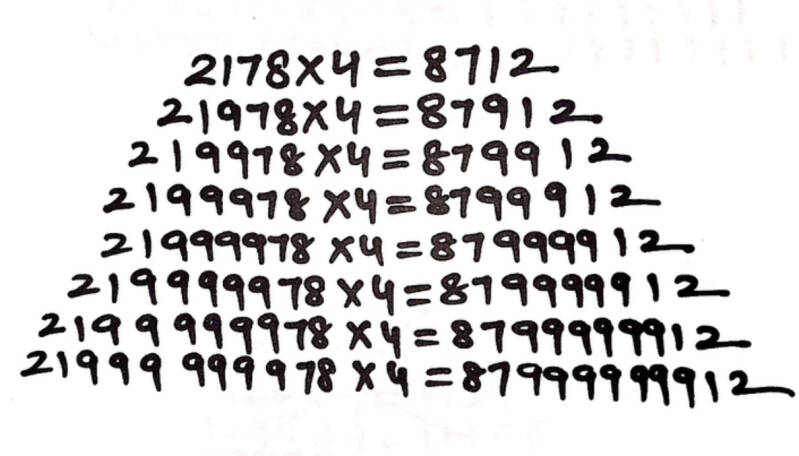 2178×4=8712
21978×4=87912
219978×4=879912
2199978×4=8799912
21999978×4=87999912
219999978×4=879999912
2199999978×4=8799999912
21999999978×4=87999999912